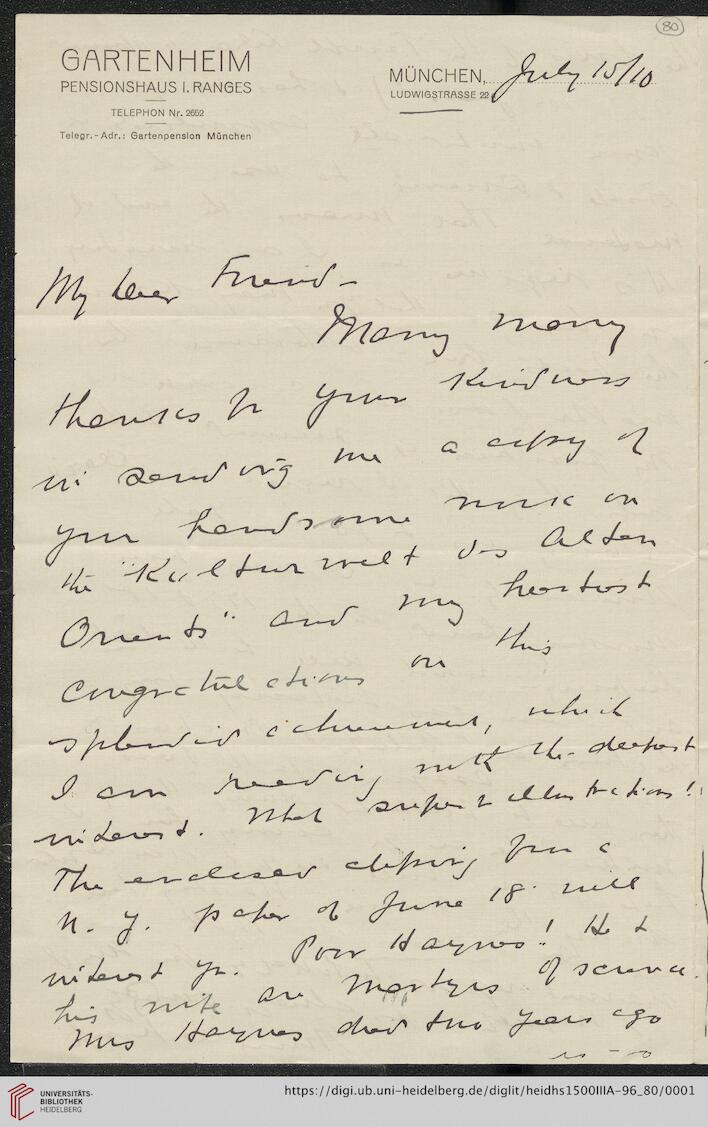 80
GARTENHEIM
PENSIONSHAUS I. RANGES
TELEPHON Nr. 2652
Telegr.-Adr.: Gartenpension München
MÜNCHEN, July 15/10
LUDWIGSTRASSE 22
My dear Friend –
Many many
thanks for your kindness
in sending me a copy of
your handsome work on
the "Kulturwelt des Alten
Orients" and my heartiest
congratulations on this
splendid achievement, which
I am reading with the deepest
interest. What superb illustrations!
The enclosed clipping from a
N. Y. paper of June 18 will
interest you. Poor Haynes! He &
his wife are martyrs of science.
Mrs Haynes died two years ago
UNIVERSITÄTS-
BIBLIOTHEK
HEIDELBERG
https://digi.ub.uni-heidelberg.de/diglit/heidhs1500IIIA-96_80/0001